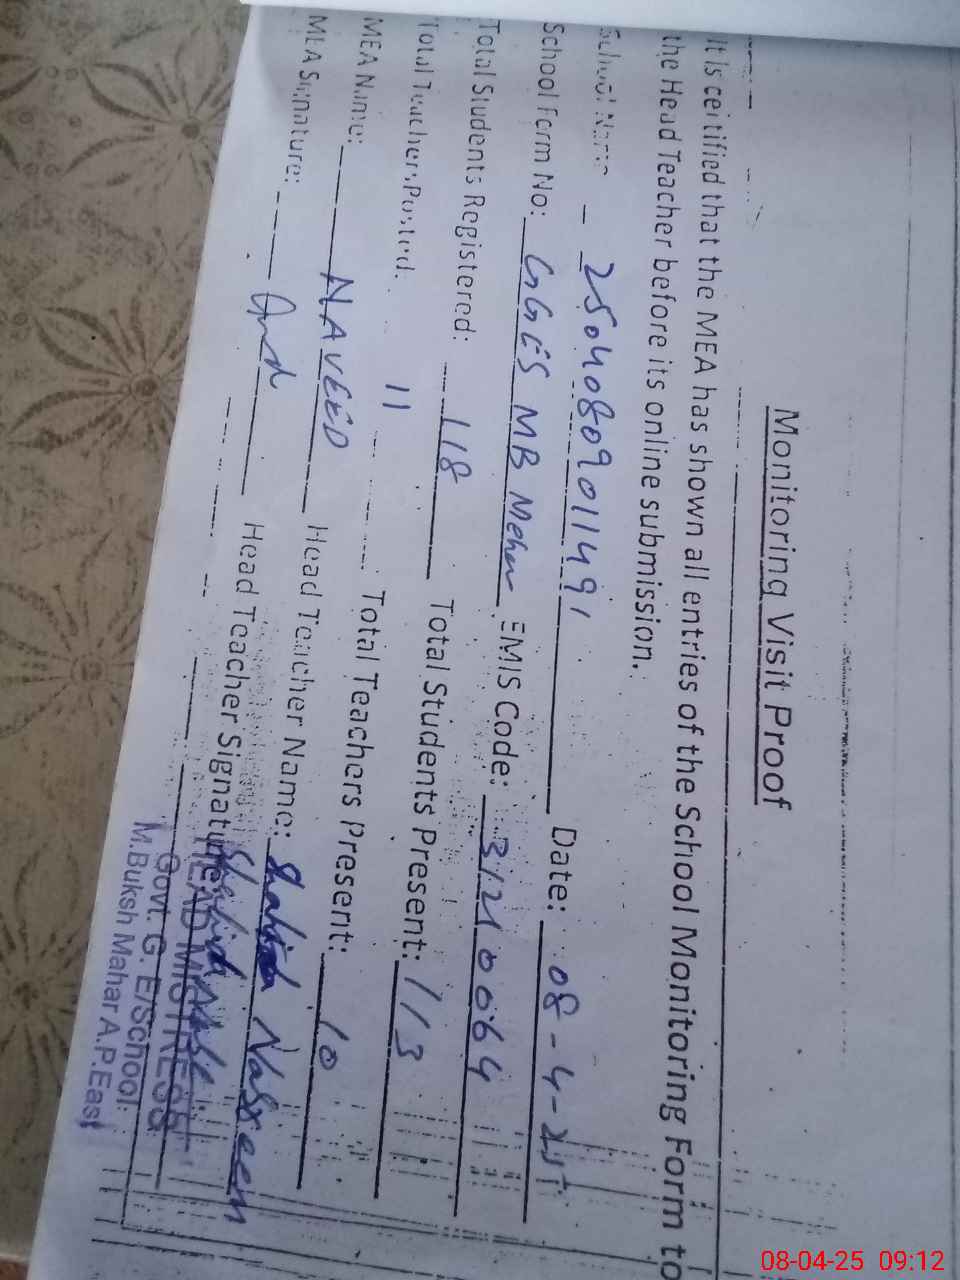 Monitoring Visit Proof
It is certified that the MEA has shown all entries of the School Monitoring Form to
the Head Teacher before its online submission.
School Name 25040809011491 Date: 08-4-25
School Form No: GGES MB Meher EMIS Code: 31210064
Total Students Registered: 118 Total Students Present: 113
Total Teachers Posted: 11 Total Teachers Present: 10
MEA Name: NAVEED Head Teacher Name: Shahida Nasreen
MEA Signature: Head Teacher Signature:
HEAD MISTRESS
Govt. G. E/School
M.Buksh Mahar A.P.East
08-04-25 09:12